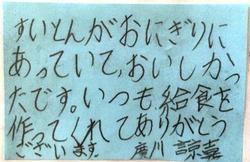 すいとんがおにぎりに
あっていて、おいしかっ
たです。いつも、給食を
作ってくれてありがとう
ございます。 廣川 諒嘉